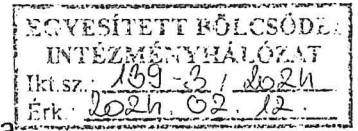 EGYESÍTETT BÖLCSŐDEI
INTÉZMÉNYHÁLÓZAT
Ikt.sz.: 139-3 / 2024
Érk.: 2024. 02. 12.
a